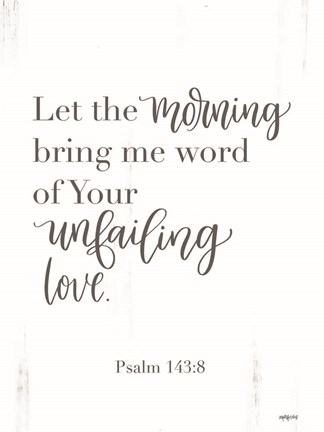 Let the morning
bring me word
of Your
unfailing
love.
Psalm 143:8